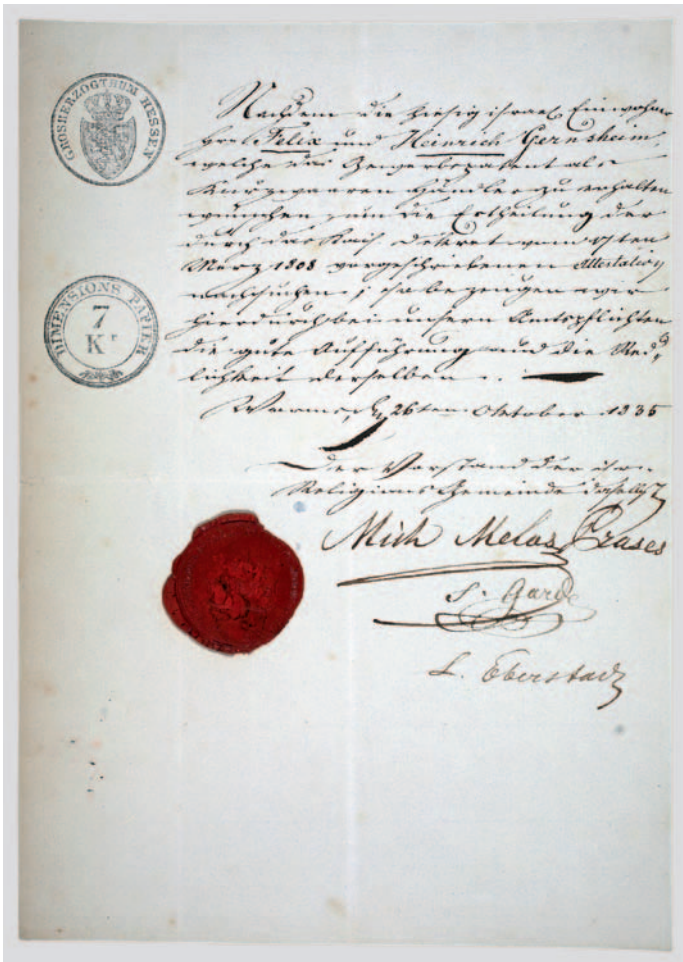 GROSHERZOGTHUM HESSEN
DIMENSIONS PAPIER
7
Kr
Nachdem die hiesig israel. Einwohner
Felix und Heinrich Gernsheim,
welche das Gewerbspatent als
Kurzwaaren Händler zu erhalten
wünschen, um die Ertheilung der
durch das Kais. Dekret vom 17ten
März 1808 vorgeschriebenen Attestation
nachsuchen; so bezeugen wir
hierdurch bei unsern Amtspflichten
die gute Aufführung und die Red,
lichkeit derselben.
Worms, den 26ten Oktober 1835
Der Vorstand der isr.
Religions Gemeinde daselbst
Mich Melas Präses
L. Eberstadt